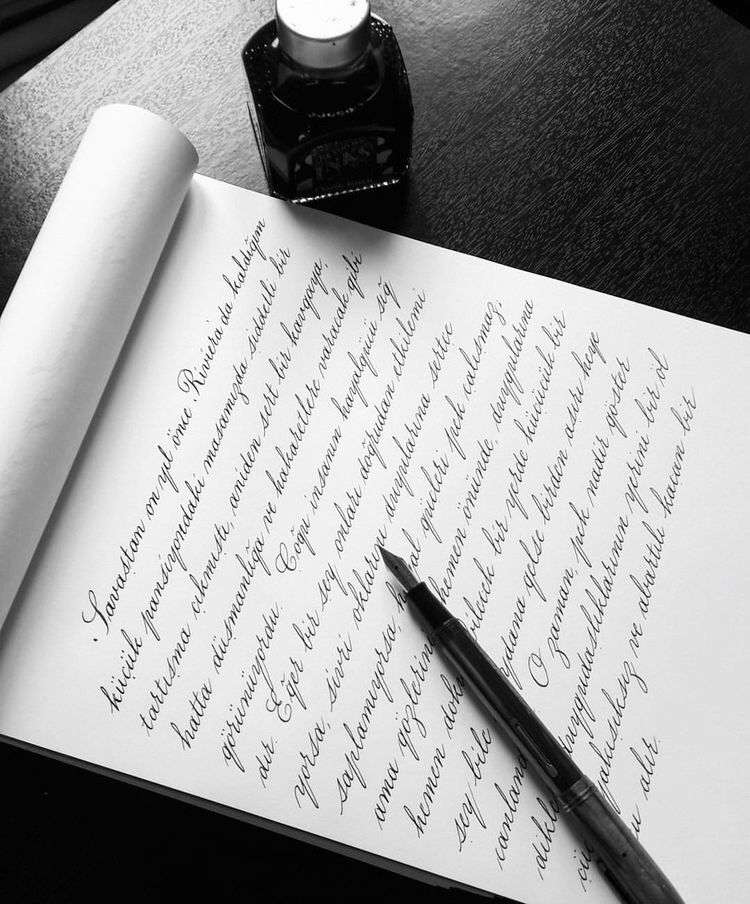 Savaştan on yıl önce Riviera'da kaldığım
küçük pansiyondaki masamızda şiddetli bir
tartışma çıkmıştı, aniden sert bir kavgaya,
hatta düşmanlığa ve hakaretlere varacak gibi
görünüyordu. Çoğu insanın hayalgücü sığ
dır. Eğer bir şey onları doğrudan etkilemi
yorsa, sivri oklarını duyularına sertçe
saplamıyorsa, güçleri pek çalışmaz;
ama gözlerinin hemen önünde, duygularına
hemen bir yerde küçücük bir
şey bile gelse birden aşırı heye
O zaman pek nadir göster
duygudaşlıklarının yerini bir öl
ve abartılı bir
alır.